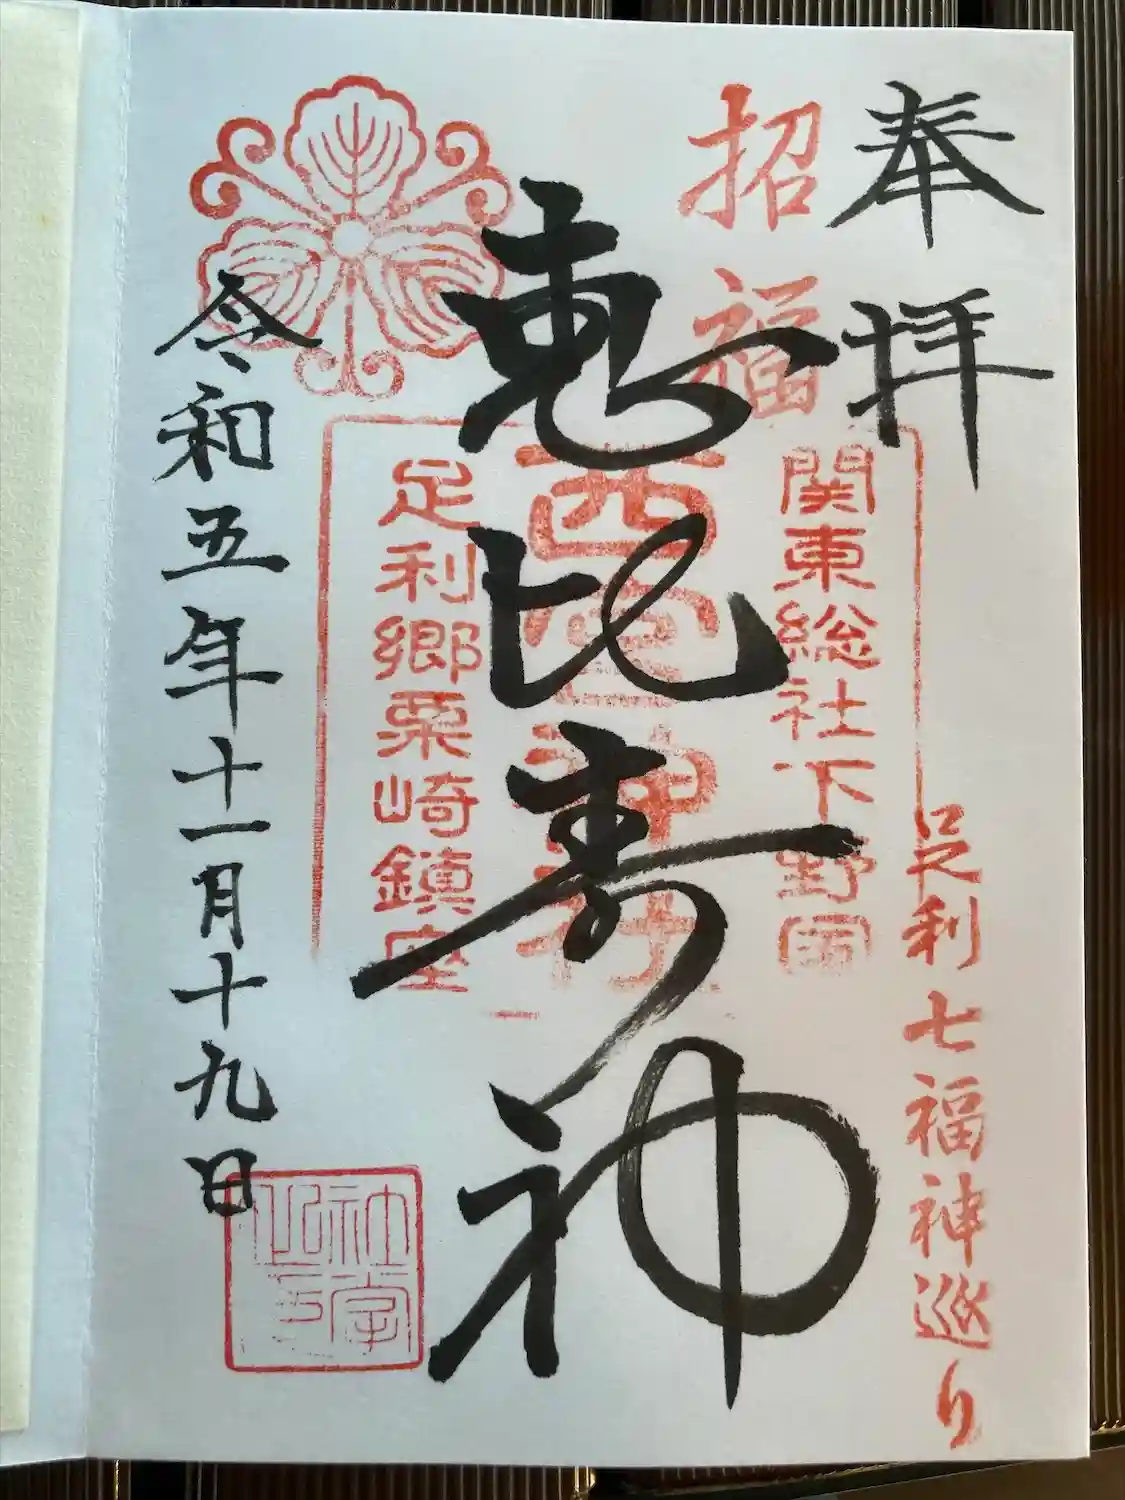 奉拝
招福
足利七福神巡り
関東総社下野国
西宮神社
恵比寿神
足利郷栗崎鎮座
令和五年十一月十九日